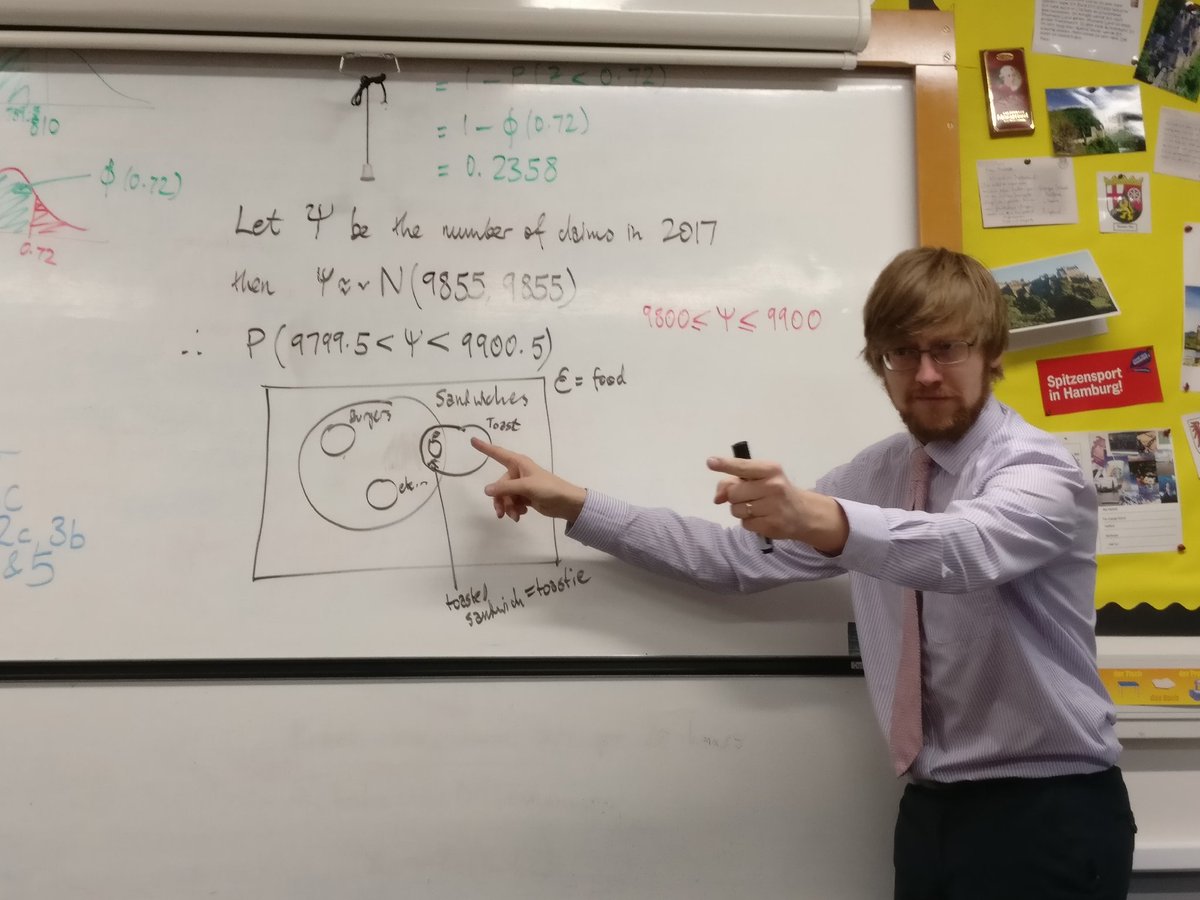 = 1 - P(Z < 0.72)
= 1 - ϕ(0.72)
= 0.2358
810
ϕ(0.72)
0.72
Let Ψ be the number of claims in 2017
then Ψ ≈ ~ N(9855, 9855)
9800 ≤ Ψ ≤ 9900
∴ P(9799.5 < Ψ < 9900.5)
ℰ = food
Sandwiches
Burgers
Toast
etc...
toasted
sandwich = toastie
C
2c, 3b
& 5
Spitzensport
in Hamburg!